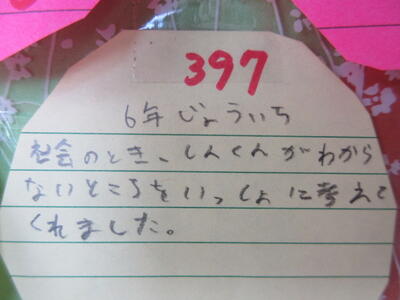 397
6年じょういち
社会のとき、しんくんがわから
ないところをいっしょに考えて
くれました。